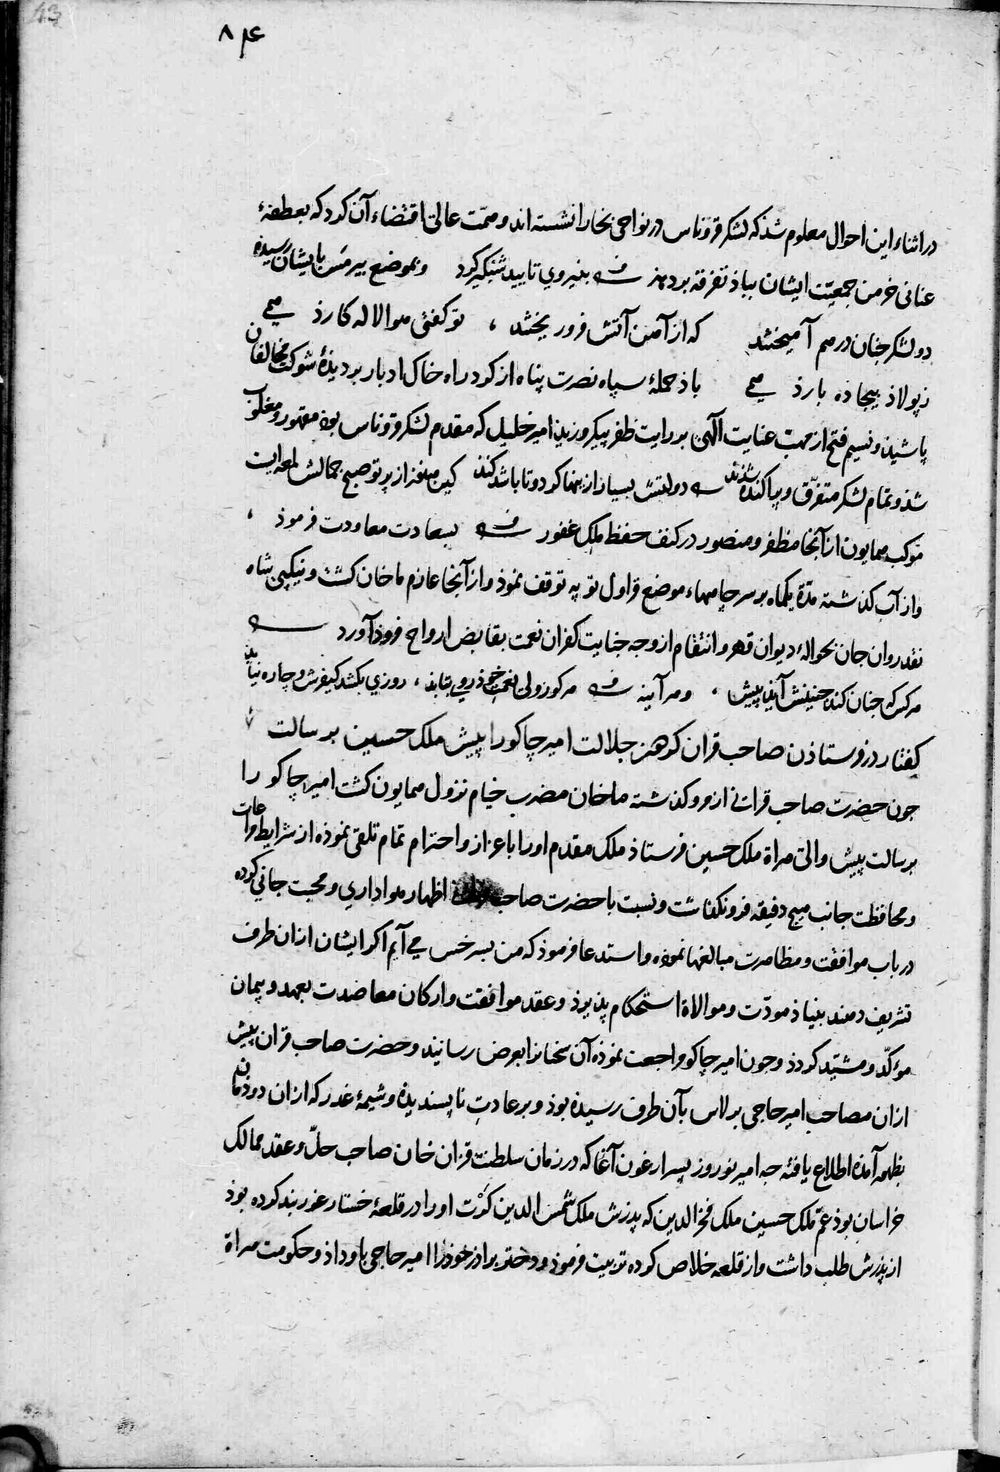 13
۸۴
در اثناء این احوال معلوم شذ که لشکر قروناس در نواحی بخارا نشسته اند و همّت عالی اقتضاء آن کرد که بعطفهٔ
عنانی خرمن جمعیّت ایشان بباذ تفرقه بردهذ بنیروی تایید شبگیر کرد وبموضع بیرمس بایشان رسیذه
دو لشکر جنان درهم آمیختند که از آهن آتش فرو ریختند ، تو کفتی هوا لاله کارذ همی
ز پولاذ بیجاده بارذ همی باذ حملهٔ سپاه نصرت پناه از کرد راه خاک ادبار بر دیذهٔ شوکت مخالفان
پاشیذ و نسیم فتح از مهب عنایت الٓهی بر رایت ظفر پیکر وزیذ امیر خلیل که مقدم لشکر قروناس بوذ مقهور و مغلوب
شذ و تمام لشکر متفرّق و پراکنده شذند دولتش بسیار ازینها کرد و تا باشد کند کین هنوز از پرتو صبح جمالش لمعه ایست
موکب همایون از آنجا مظفر و منصور در کنف حفظ ملک غفور بسعادت معاودت فرموذ ،
و از آب کذشته مدّة یکماه بر سر جامهاء موضع قراول تو په توقف نموذ و از آنجا عازم ماخان کشت و نیکپی شاه
نقد روان جان بحوالهٔ دیوان قهر و انتقام از وجه جنایت کفران نعمت بقابض ارواح فروذ آورد
هرکس که جنان کند جنینش آیذ پیش ، و هرآینه هرکو ز ولی نعمت خوذ روی بتابذ ، روزی بکشد کیفرش و چاره نیابد
کفتار در فرستاذن صاحب قران کوهن جلالت امیر چاکو را پیش ملک حسین برسالت
جون حضرت صاحب قرانی از مرو کذشته ماخان مضرب خیام نزول همایون کشت امیر جاکو را
برسالت پیش والی هراة ملک حسین فرستاذ ملک مقدم او را باعزاز و احترام تمام تلقی نموذه از شرایط مراعات
و محافظت جانب هیج دقیقه فرو نکذاشت و نسبت با حضرت صاحب اظهار هواداری و محبت جانی کرده
در باب موافقت و مظاهرت مبالغها نموذه و استدعا فرموذ که من بسرخس می آیم اکر ایشان از ان طرف
تشریف دهند بنیاذ مودّت و موالاة استحکام پذیرذ و عقد موافقت و ارکان معاضدت بعهد و پیمان
مؤکّد و مشیّد کردذ و جون امیر جاکو مراجعت نموذه آن سخنانرا بعرض رسانیذ و حضرت صاحب قران پیش
ازان مصاحب امیر حاجی برلاس بآن طرف رسیذه بوذ و بر عادتِ ناپسندیذهٔ و شیمهٔ غدر که از ان دوذمان
بظهور آمذه اطلاع یافته جه امیر نوروز پسر ارغون آقا که در زمان سلطنت قزان خان صاحب حلّ و عقد ممالک
خراسان بوذ عمّ ملک حسین ملک فخر الدین که پذرش ملک شمس الدین کَرْت او را در قلعهٔ خستار غور بند کرده بوذ
از پذرش طلب داشت و از قلعه خلاص کرده تربیت فرموذ و دختر براذر خوذ را امیر حاجی باو داذ و حکومت هراة